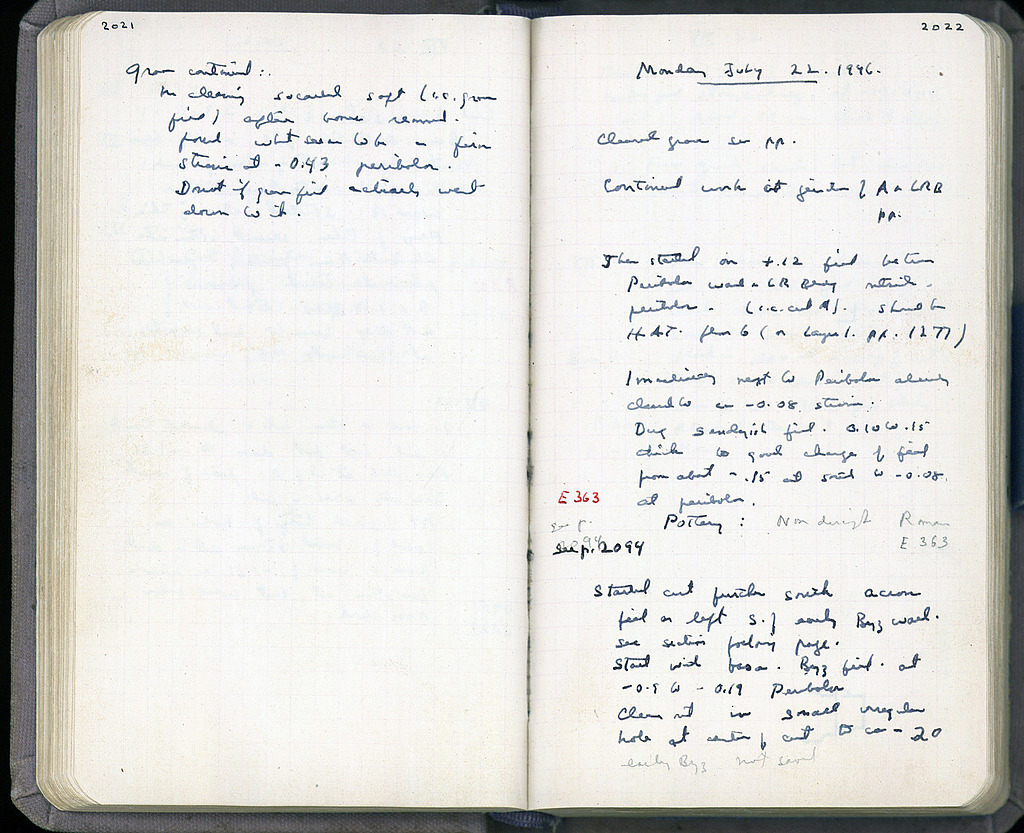 2021
Grave continued:.
In cleaning soft (i.e. grave
fill) after bones removed.
found what seems to be a firm
stratum at - 0.43 peribolos.
Do not if grave fill actually went
down to it.
2022
Monday July 22. 1996.
Cleaned grave see pp.
Continued work at junction of A & LRB
pp.
Then started on +.12 fill between
Peribolos wall & LR Bldg
peribolos. (i.e. cut A). should be
H.A.T. from 6 (or Layer 1. pp. 1277)
Immediately next to Peribolos already
cleared to ca -0.08 stratum.
Dug sandyish fill. 0.10 to .15
thick to good change of fill
from about -.15 at south to -0.08
at peribolos.
E 363
Pottery: Non descript Roman
E 363
See p.
2094
See p. 2094
Started cut further south across
fill as left S. of early Byz wall.
see section facing page.
Start with Byz fill. at
- 0.19 Peribolos
Clean in small irregular
hole at center of cut to ca - 20
early Byz not saved